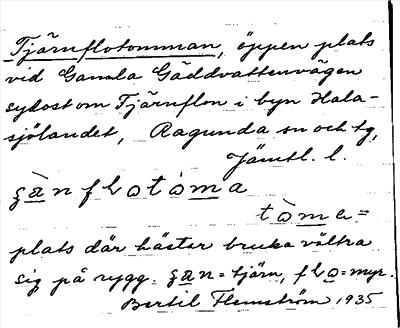 Tjärnflotomman, öppen plats
vid Gamla Gäddvattenvägen
sydost om Tjärnflon i byn Hala-
sjölandet, Ragunda sn och tg,
Jämtl. l.
ʂà̱n f l o̱ t ò̱ m a
t ò̱ m a =
plats där hästar bruka vältra
sig på rygg. ʂa̱n = tjärn, f l o̱ = myr.
Bertil Flemström 1935